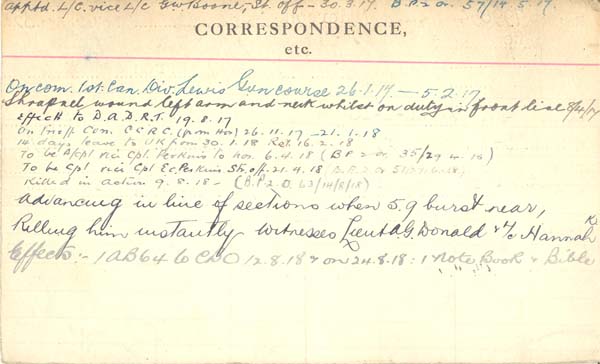 apptd. L/C. vice L/C G.W. Boone, St. off - 30.3.17. B.P.2 or. 57/14.5.17.
CORRESPONDENCE,
etc.
On com. 1st. Can. Div. Lewis Gun course 26.1.17 — 5.2.17
Shrapnel wound left arm and neck whilst on duty in front line
Effects to D.A.D.R.T. 19.8.17
Com. C.C.R.C. (from Hos) 26.11.17 - 21.1.18
14 days leave to UK from 30.1.18 Ret. 16.2.18
To be A/Cpl vice Cpl. Perkins to Hos. 6.4.18 (B.P.2 or 35/29.4.18)
To be Cpl vice Cpl Ec. Perkins St. off. 21.4.18
Killed in action 9.8.18 - (B.P.2.O. 63/14/8/18)
Advancing in line of sections when 5.9 burst near,
Killing him instantly Witnesses Lieut A.G. Donald & Hannah
Effects:- 1 AB64 to CBO 12.8.18 & on 24.8.18: 1 Note Book & Bible